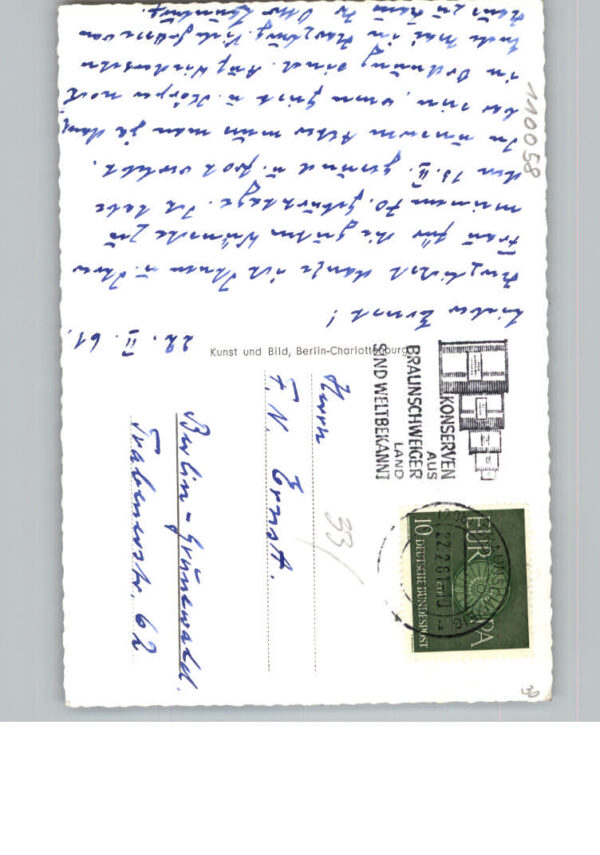 22. II. 61.
Lieber Ernst!
Herzlichst danke ich Ihnen u. Ihrer
Frau für die guten Wünsche zu
meinem 70. Geburtstage. Ich habe
den 13. II. gesund u. froh verlebt.
In unserem Alter muss man ja dank-
bar sein, wenn Geist u. Körper noch
in Ordnung sind. Auf Wiedersehen
Ende Mai in Harzburg. Viele Grüsse von
Haus zu Haus Ihr Otto
110058
Kunst und Bild, Berlin-Charlottenburg
KONSERVEN
AUS
BRAUNSCHWEIGER
LAND
SIND WELTBEKANNT
BRAUNSCHWEIG
22.2.61
EUROPA
CEPT
10 DEUTSCHE BUNDESPOST
33/
Herrn
F. N. Ernst.
Berlin-Grünewald.
Trabenerstr. 62
39